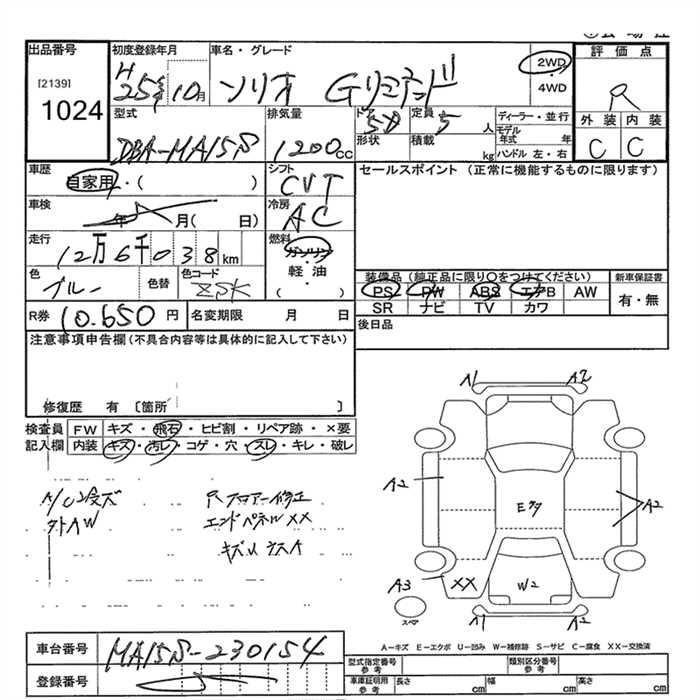 出品番号
[2139]
1024
初度登録年月
H
25年10月
車名・グレード
ソリオ Gリミテッド
2WD
・
4WD
評価点
R
外装 内装
C C
型式
DBA-MA15S
排気量
1200cc
ドア
5D
形状
定員
5人
積載
kg
ディーラー・並行
モデル
年式 年
ハンドル 左・右
車歴
自家用・( )
シフト
CVT
セールスポイント (正常に機能するものに限ります)
車検
年 月( 日)
冷房
AC
走行
12万6千038km
燃料
ガソリン
・
軽・油
( )
色
ブルー
色替
色コード
ZSK
装備品 (純正品に限り○をつけてください)
PS PW ABS エアB AW
SR ナビ TV カワ
新車保証書
有・無
R券 10.650円
名変期限 月 日
後日品
注意事項申告欄(不具合内容等は具体的に記入して下さい)
修復歴 有 〔箇所 〕
検査員
記入欄
FW キズ・飛石・ヒビ割・リペア跡・×要
内装 キズ・汚レ・コゲ・穴・スレ・キレ・破レ
外AW
Rフロアー修正
エンドパネルXX
A1 A2
A2
A2
エクタ
A3
XX
W2
スペア
A1 A2
A-キズ E-エクボ U-凹み W-補修跡 S-サビ C-腐食 XX-交換済
車台番号 MA15S-230154
登録番号
型式指定番号
参考
類別区分番号
参考
車庫証明用
参考
長さ cm 幅 cm 高さ cm